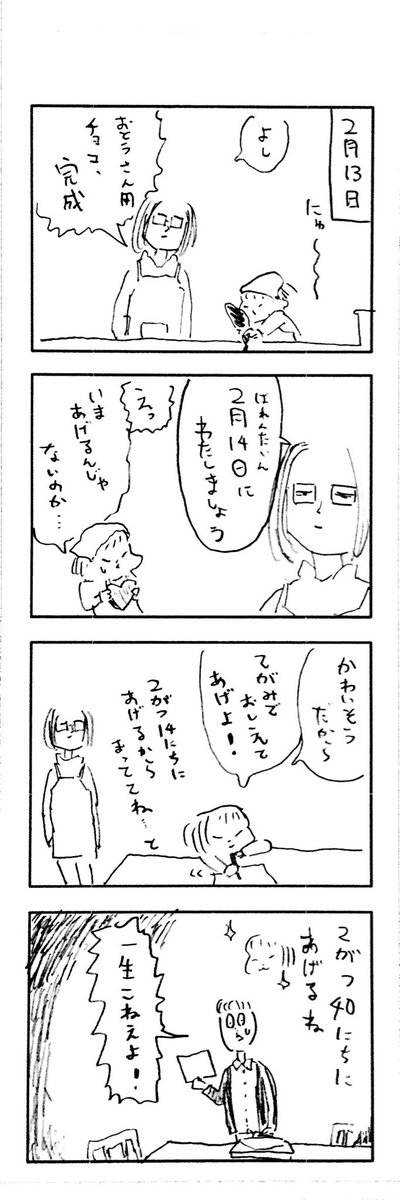 2月13日
よし
にゅ〜〜〜
おとうさん用
チョコ、
完成
ばれんたいん
2月14日に
わたしましょう
えっ
いま
あげるんじゃ
ないのか…
かわいそう
だから
てがみで
おしえて
あげよ!
2がつ14にちに
あげるから
まっててね…と
2がつ40にちに
あげるね
一生こねえよ!